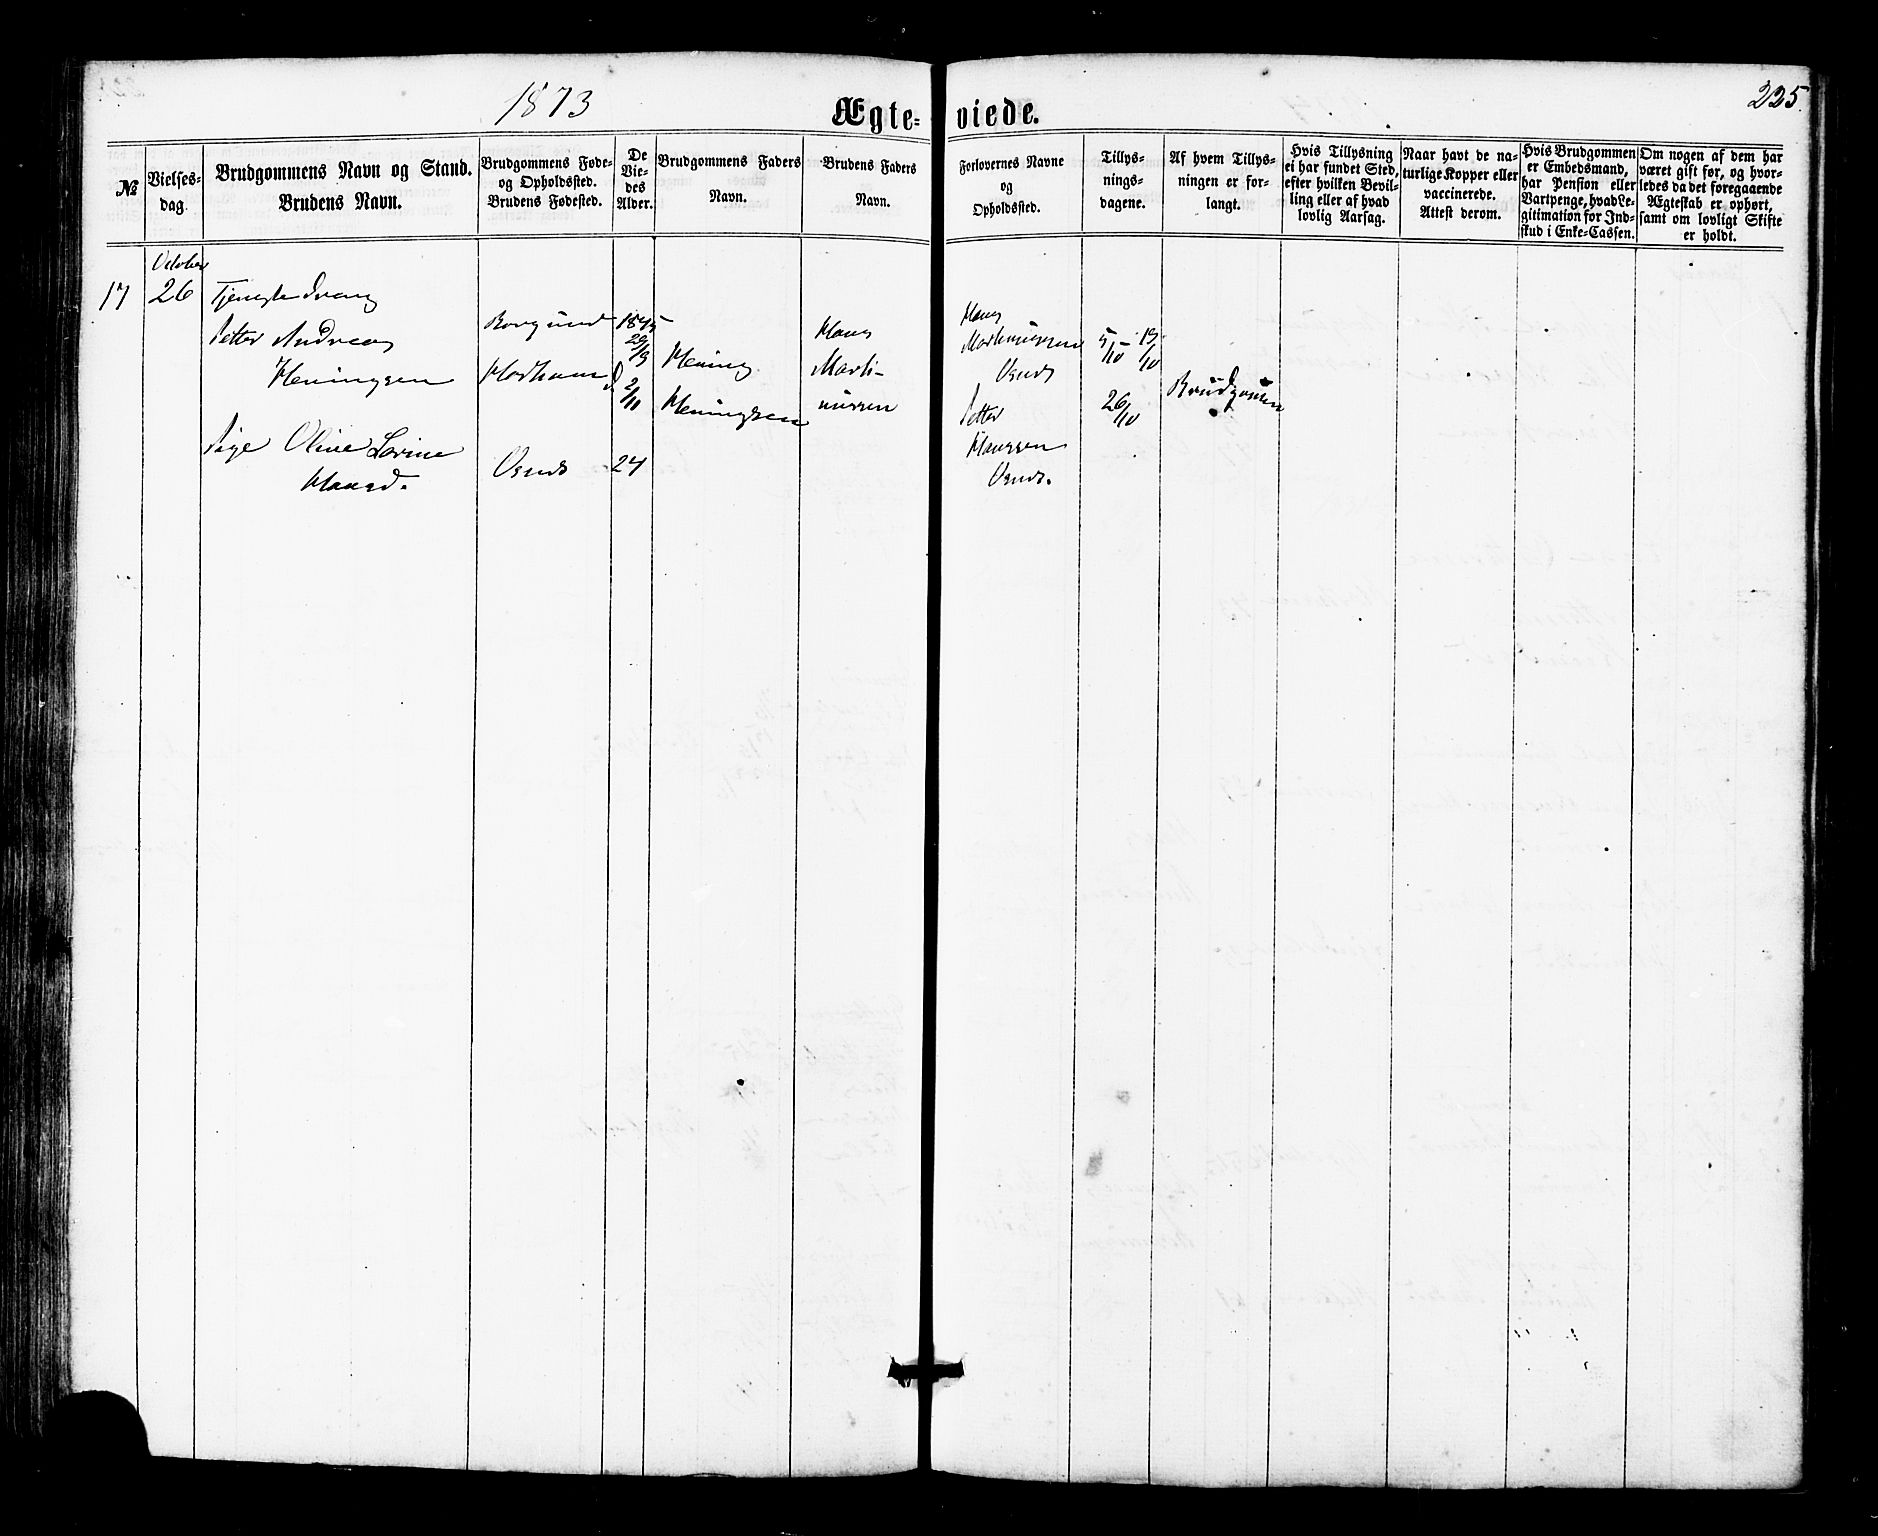 1873
Ægte-
viede.
225.
№
Vielses-
dag.
Brudgommens Navn og Stand.
Brudens Navn.
Brudgommens Føde-
og Opholdssted.
Brudens Fødested.
De
Vie-
des
Alder.
Brudgommens Faders
Navn.
Brudens Faders
Navn.
Forlovernes Navne
og
Opholdssted.
Tillys-
nings-
dagene.
Af hvem Tillys-
ningen er for-
langt.
Hvis Tillysning
ei har fundet Sted,
efter hvilken Bevil-
ling eller af hvad
lovlig Aarsag.
Naar havt de na-
turlige Kopper eller
vaccinerede.
Attest derom.
Hvis Brudgommen
er Embedsmand,
har Pension eller
Vartpenge, hvad Le-
gitimation for Ind-
skud i Enke-Cassen.
Om nogen af dem har
været gift før, og hvor-
ledes da det foregaaende
Ægteskab er ophørt,
samt om lovligt Skifte
er holdt.
October
17
26
Tjenestedreng
Petter Andreas
Heningsen
Pige Oline Lovine
Hansd.
Borgund
Osnes
1845
29/9
2/11
24
Hening
Heningsen
Hans
Marti-
nussen
Hans
Martinussen
Osnes
Petter
Hanssen
Osnes.
5/10 19/10
26/10
Brudgomen